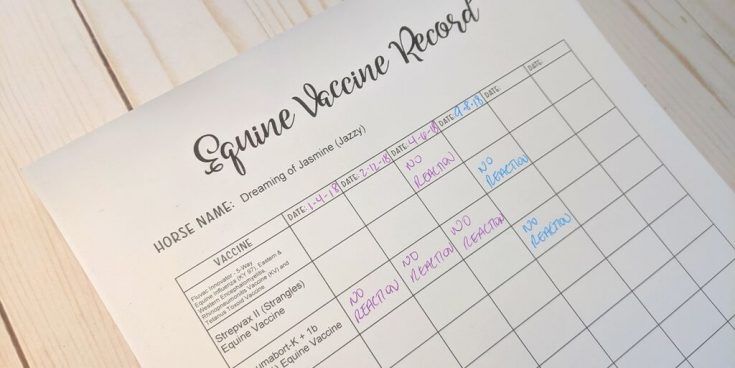 Equine Vaccine Record
HORSE NAME: Dreaming of Jasmine (Jazzy)
VACCINE
DATE: 1-4-18
DATE: 2-12-18
DATE:
DATE: 9-8-18
DATE:
DATE:
Fluvac Innovator - 5-Way
Equine Influenza (KY 97), Eastern &
Western Encephalomyelitis,
Rhinopneumonitis Vaccine (KV) and
Tetanus Toxoid Vaccine
NO
REACTION
NO
REACTION
Strepvax II (Strangles)
Equine Vaccine
NO
REACTION
NO
REACTION
NO
REACTION
NO
REACTION
umabort-K + 1b
) Equine Vaccine